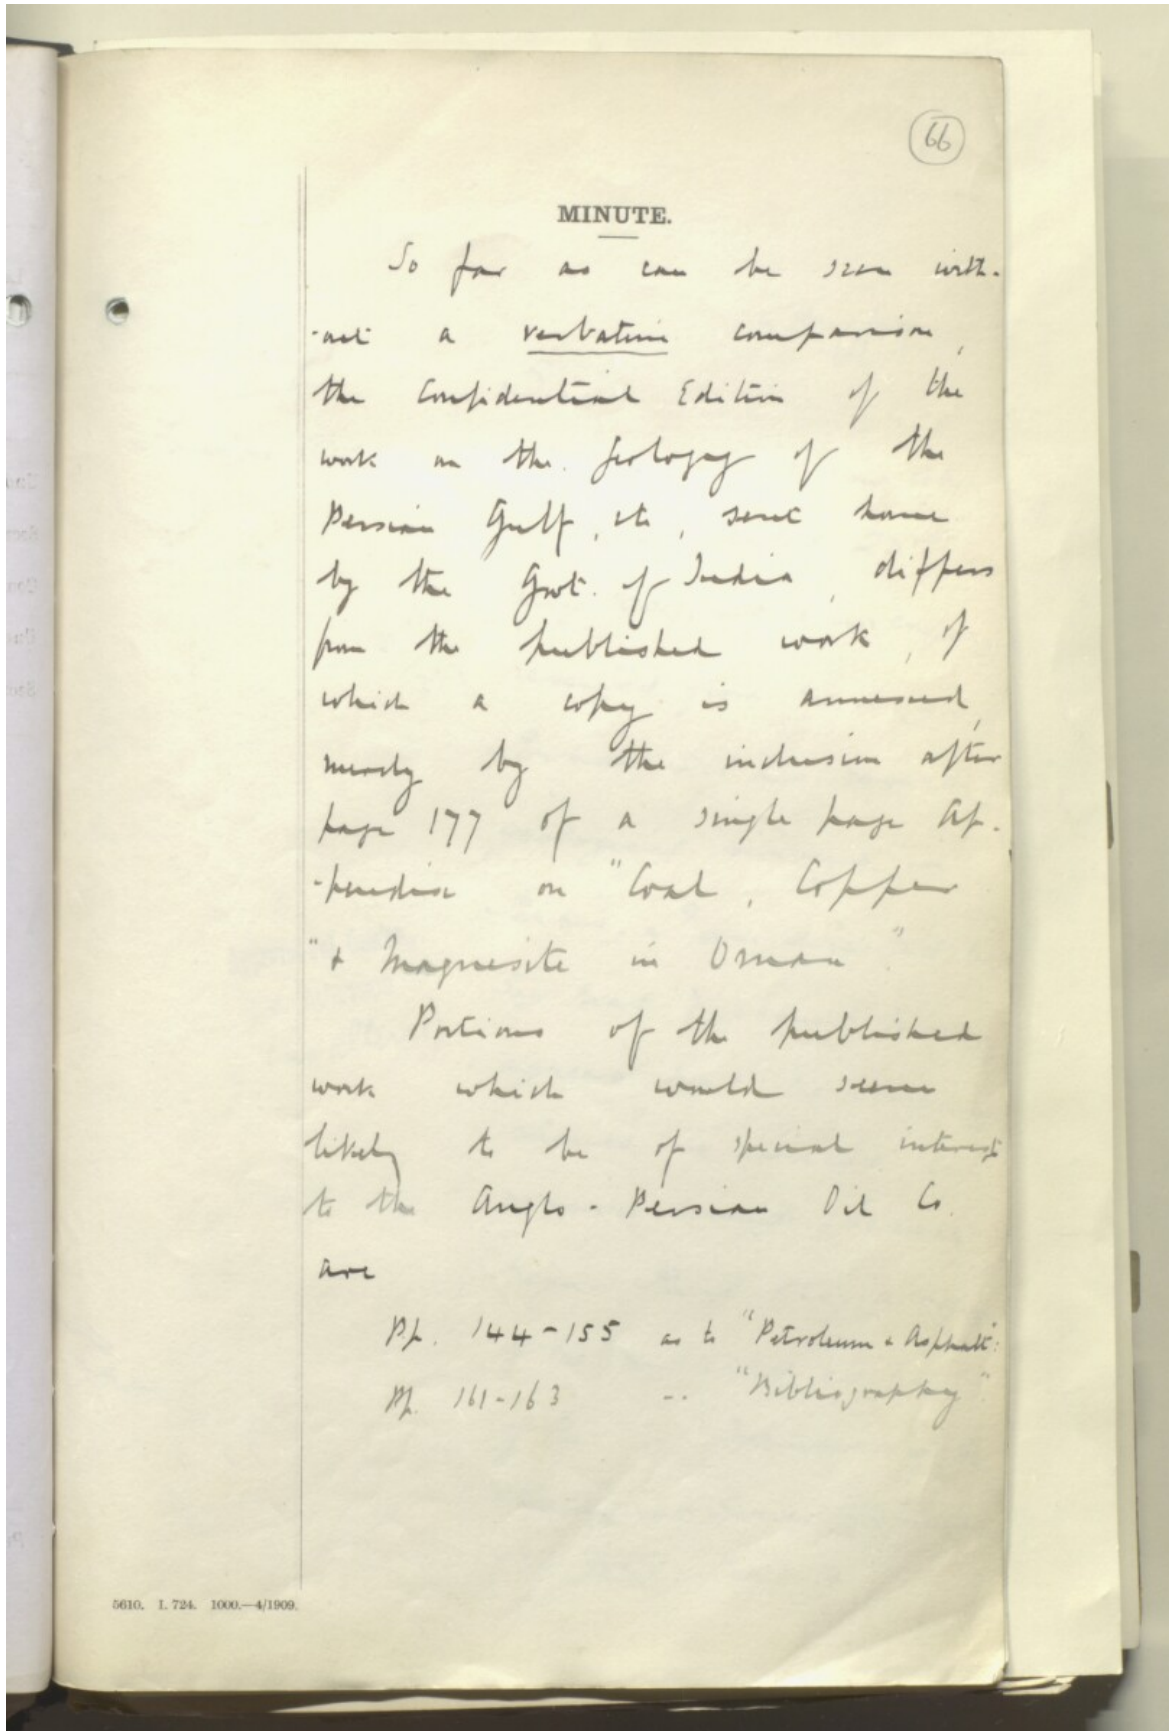 66
MINUTE.
So far as can be seen with-
-out a verbatim comparison,
the Confidential Edition of the
work on the Geology of the
Persian Gulf, etc, sent home
by the Govt. of India, differs
from the published work, of
which a copy is annexed,
merely by the inclusion after
page 177 of a single page Ap-
-pendix on "Coal, Copper
"& Magnesite in Oman".
Portions of the published
work which would seem
likely to be of special interest
to the Anglo-Persian Oil Co.
are
Pp. 144-155 as to "Petroleum & Asphalt":
Pp. 161-163 " " "Bibliography".
5610. I. 724. 1000.—4/1909.